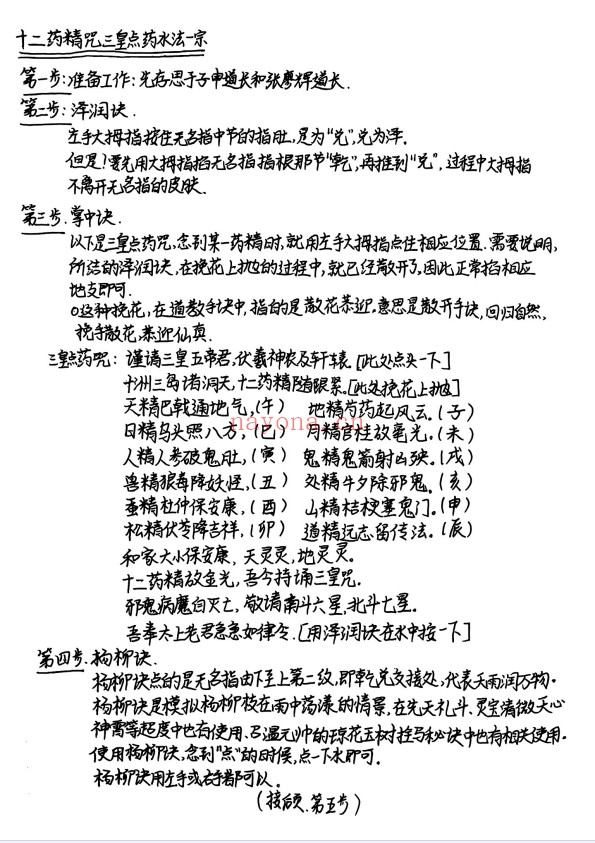 十二药精咒三皇点药水法一宗
第一步:准备工作:先存思于子申道长和张廖辉道长.
第二步:泽润诀.
左手大拇指按住无名指中节的指肚,是为"兑",兑为泽.
但是!要先用大拇指掐无名指指根那节"乾",再推到"兑",过程中大拇指
不离开无名指的皮肤.
第三步.掌中诀.
以下是三皇点药咒,念到某一药精时,就用左手大拇指点住相应位置.需要说明,
所结的泽润诀,在挽花上抛的过程中,就已经散开了.因此正常掐相应
地支即可.
○这种挽花,在道教手诀中,指的是散花恭迎.意思是散开手诀,回归自然,
挽手散花,恭迎仙真.
三皇点药咒: 谨请三皇五帝君,伏羲神农及轩辕.[此处点头一下]
十洲三岛诸洞天,十二药精随跟来.[此处挽花上抛]
天精巴戟通地气,(午) 地精芍药起风云.(子)
日精乌头照八方,(巳) 月精官桂放毫光.(未)
人精人参破鬼肚,(寅) 鬼精鬼箭射凶殃.(戌)
兽精狼毒降妖怪,(丑) 处精牛夕除邪鬼.(亥)
蚕精杜仲保安康,(酉) 山精桔梗塞鬼门.(申)
松精伏苓降吉祥,(卯) 道精远志留传法.(辰)
和家大小保安康,天灵灵,地灵灵.
十二药精放金光,吾今持诵三皇咒.
邪鬼病魔自灭亡,敬请南斗六星,北斗七星.
吾奉太上老君急急如律令.[用泽润诀在水中按一下]
第四步.杨柳诀.
杨柳诀点的是无名指由下至上第二纹,即乾兑交接处,代表天雨润万物.
杨柳诀是模拟杨柳枝在雨中荡漾的情景,在先天礼斗、灵宝清微天心
神霄等超度中也有使用.温元帅的琼花玉树拴马秘诀中也有相关使用.
使用杨柳诀,念到"点"的时候,点一下水即可.
杨柳诀用左手或右手都可以.
(接后页.第五步)
nayona.cn